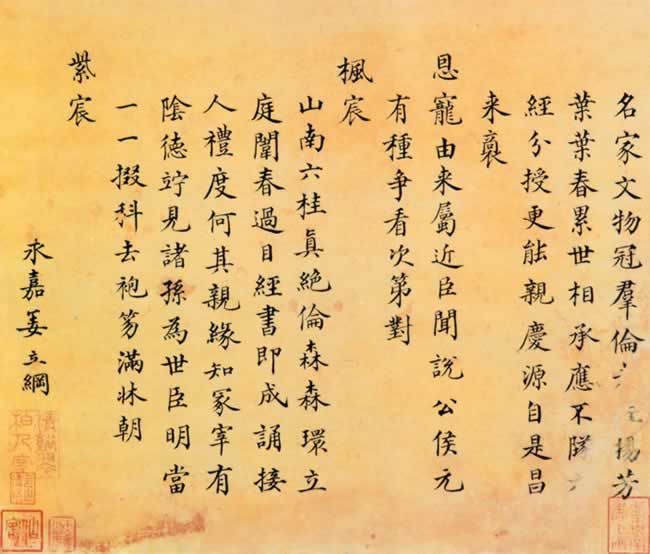 名家文物冠羣倫揚芳
葉葉春累世相承應不隊
經分授更能親慶源自是昌
来裔
恩寵由来屬近臣聞說公侯元
有種争看次第對
楓宸
山南六桂眞絶倫森森環立
庭闈春過目經書即成誦接
人禮度何其親緣知冢宰有
陰德竚見諸孫為世臣明當
一一掇科去袍笏滿牀朝
紫宸
永嘉姜立綱